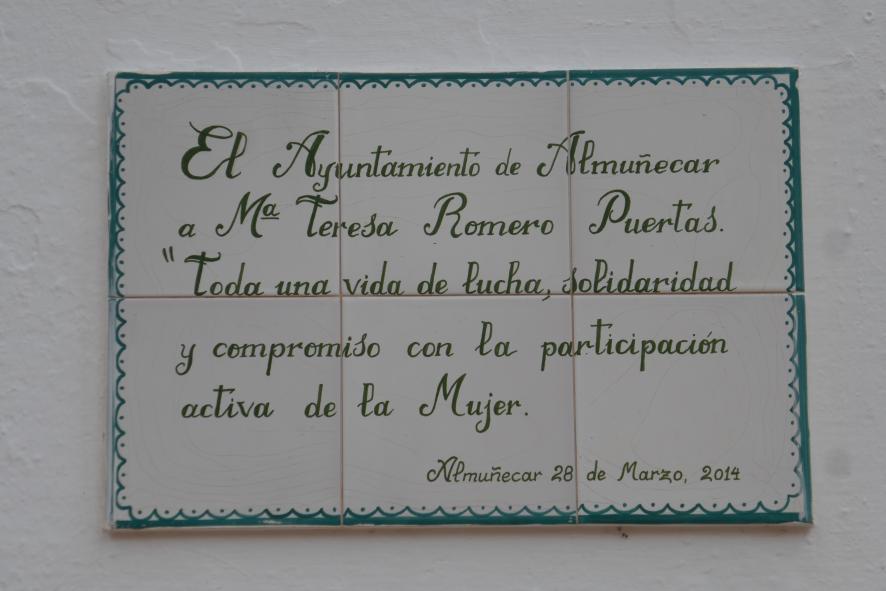 El Ayuntamiento de Almuñecar
a Mª Teresa Romero Puertas.
"Toda una vida de lucha, solidaridad
y compromiso con la participación
activa de la Mujer.
Almuñecar 28 de Marzo, 2014